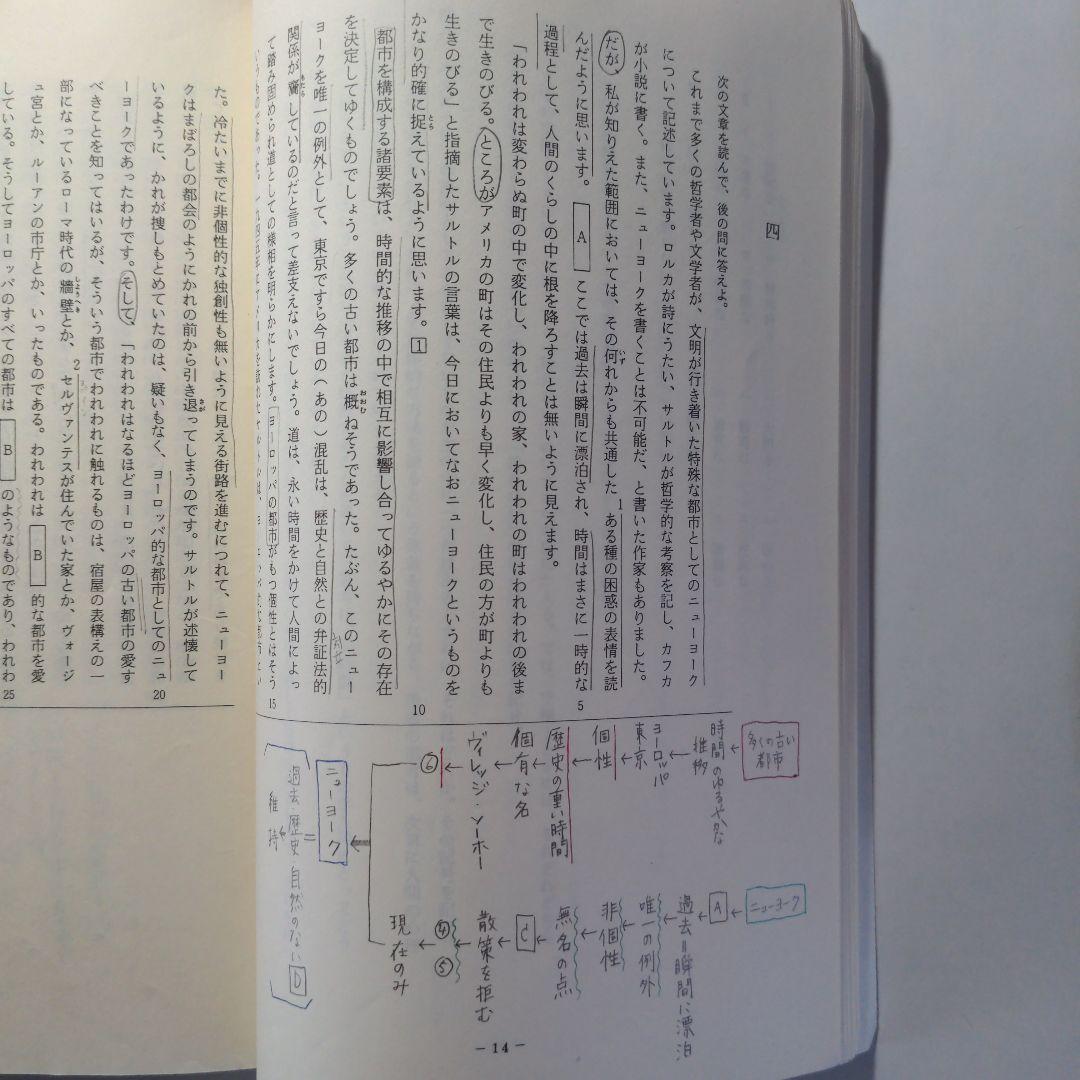 四
次の文章を読んで、後の問に答えよ。
これまで多くの哲学者や文学者が、文明が行き着いた特殊な都市としてのニューヨーク
について記述しています。ロルカが詩にうたい、サルトルが哲学的な考察を記し、カフカ
が小説に書く。また、ニューヨークを書くことは不可能だ、と書いた作家もありました。
だが、私が知りえた範囲においては、その何れからも共通した1ある種の困惑の表情を読
んだように思います。 A ここでは過去は瞬間に漂泊され、時間はまさに一時的な
過程として、人間のくらしの中に根を降ろすことは無いように見えます。
「われわれは変わらぬ町の中で変化し、われわれの家、われわれの町はわれわれの後ま
で生きのびる。ところがアメリカの町はその住民よりも早く変化し、住民の方が町よりも
生きのびる」と指摘したサルトルの言葉は、今日においてなおニューヨークというものを
かなり的確に捉えているように思います。 1
都市を構成する諸要素は、時間的な推移の中で相互に影響し合ってゆるやかにその存在
を決定してゆくものでしょう。多くの古い都市は概ねそうであった。たぶん、このニュー
ヨークを唯一の例外として、東京ですら今日の(あの)混乱は、歴史と自然との弁証法的
関係が齎しているのだと言って差支えないでしょう。道は、永い時間をかけて人間によっ
て踏み固められ道としての様相を明らかにします。ヨーロッパの都市がもつ個性とはそう
た。冷たいまでに非個性的な独創性も無いように見える街路を進むにつれて、ニューヨー
クはまぼろしの都会のようにかれの前から引き退ってしまうのです。サルトルが述懐して
いるように、かれが捜しもとめていたのは、疑いもなく、ヨーロッパ的な都市としてのニュ
ーヨークであったわけです。そして、「われわれはなるほどヨーロッパの古い都市の愛す
べきことを知ってはいるが、そういう都市でわれわれに触れるものは、宿屋の表構えの一
部になっているローマ時代の牆壁とか、2セルヴァンテスが住んでいた家とか、ヴォージ
ュ宮とか、ルーアンの市庁とか、いったものである。われわれは B 的な都市を愛
している。そうしてヨーロッパのすべての都市は B のようなものであり、われわ
5
10
15
20
25
多くの古い都市
時間のゆるやかな推移
ヨーロッパ
東京
個性
歴史の重い時間
個有な名
ヴィレッジ・ソーホー
⑥
ニューヨーク
A
過去=瞬間に漂泊
唯一の例外
非個性
無名の点
C
散策を拒む
④
⑤
現在のみ
ニューヨーク
=
過去・歴史・自然のない D
維持
- 14 -